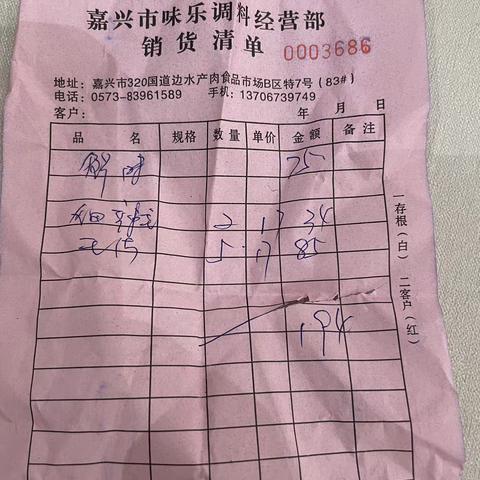 嘉兴市味乐调料经营部
销货清单 0003686
地址：嘉兴市320国道边水产肉食品市场B区特7号（83#）
电话：0573-83961589 手机：13706739749
客户： 年 月 日
品名 规格 数量 单价 金额 备注
75
2 17 34
5 17 85
194
一存根（白） 二客户（红）